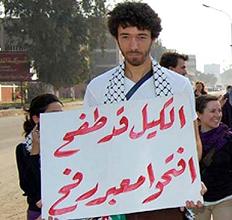 الكيل قد طفح
افتحوا معبر رفح